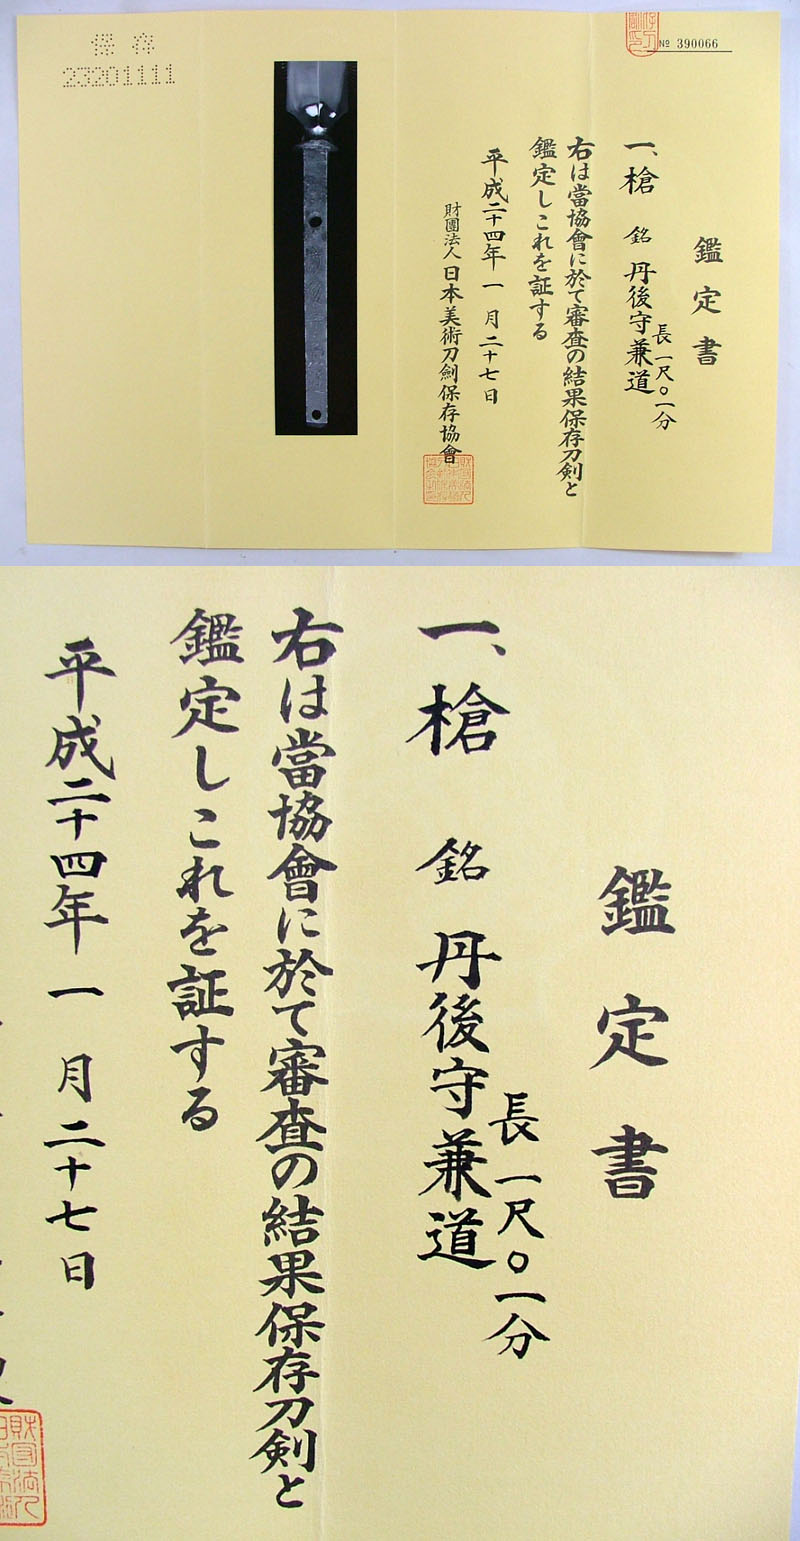 鑑定書
№ 390066
一、槍 銘 丹後守兼道
長一尺〇一分
右は當協會に於て審査の結果保存刀剣と
鑑定しこれを証する
平成二十四年一月二十七日
財團法人日本美術刀劍保存協會
保存
23201111
鑑定書
長一尺〇一分
一、槍 銘 丹後守兼道
右は當協會に於て審査の結果保存刀剣と
鑑定しこれを証する
平成二十四年一月二十七日